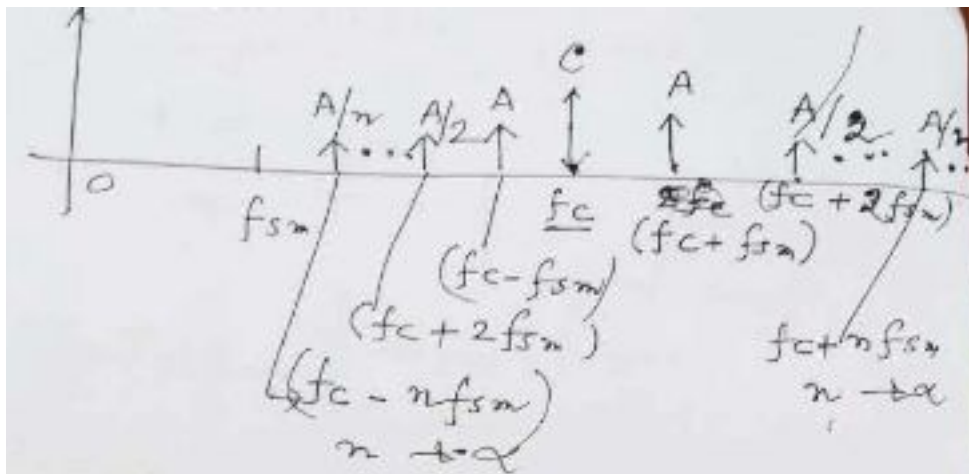 C
A/n A/2 A A A/2 A/n
0 fsm fc (fc + fsm) (fc + 2fsm)
(fc - fsm)
(fc + 2fsm) fc + n fsm
(fc - n fsm) n → α
n → α